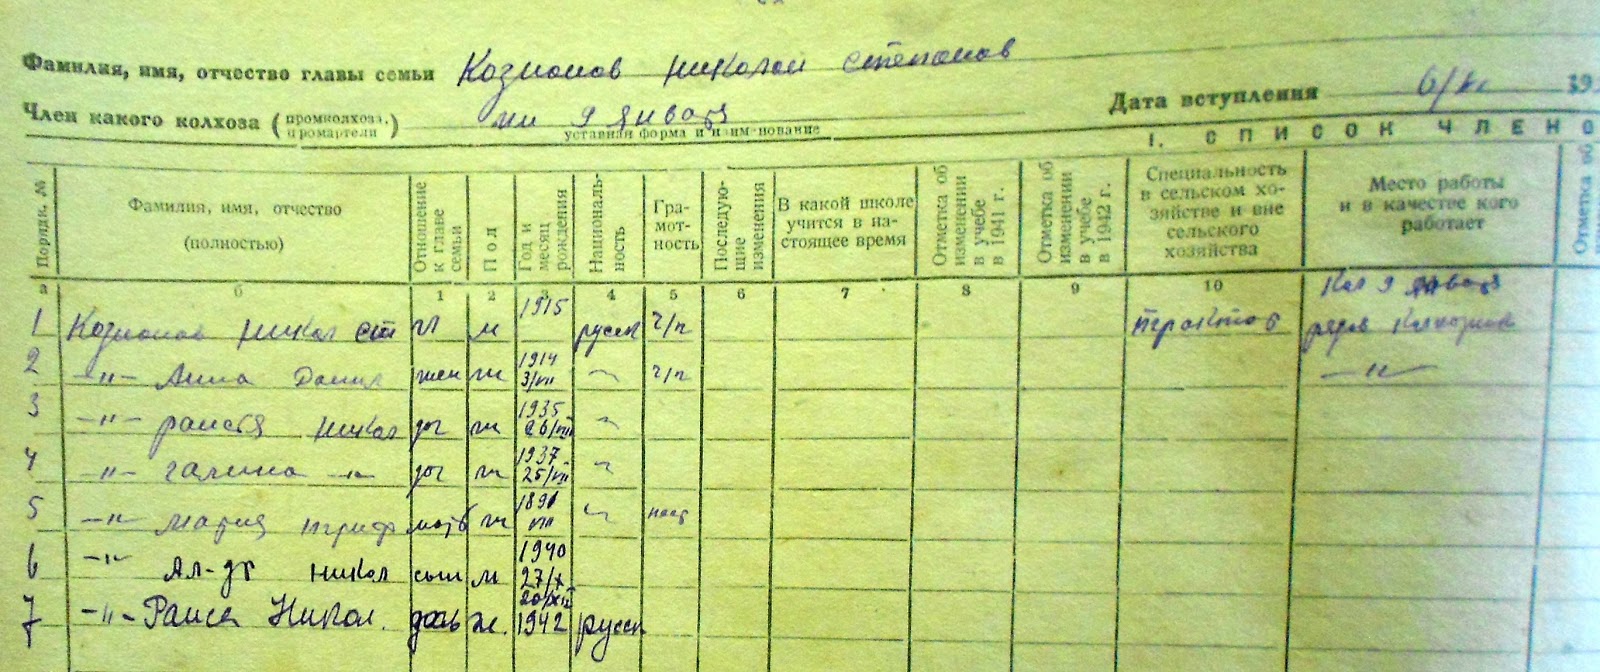 Фамилия, имя, отчество главы семьи Козионов Николай Степанов
Член какого колхоза (промколхоза, промартели) им 9 января Дата вступления 19
уставная форма и наименование
I. СПИСОК ЧЛЕНО
Порядк. № Фамилия, имя, отчество (полностью) Отношение к главе семьи Пол Год и месяц рождения Националь-ность Гра-мот-ность Последую-щие изменения В какой школе учится в на-стоящее время Отметка об изменении в учебе в 1941 г. Отметка об изменении в учебе в 1942 г. Специальность в сельском хо-зяйстве и вне сельского хозяйства Место работы и в качестве кого работает Отметка об
а б 1 2 3 4 5 6 7 8 9 10
Кол 9 января
1 Козионов Никол Ст гл м 1915 русск г/п трактор рядов колхозник
2 -"- Анна Данил жен ж 1914 3/VII г/п -"-
3 -"- Никол доч ж 1935 26/VII
4 -"- Галина -"- доч ж 1937 25/VII
5 -"- Мария Триф мать ж VII
6 -"- Ал-др Никол сын м 1940 27/X
7 -"- Раиса Никол. дочь ж. 20/XII 1942 русск